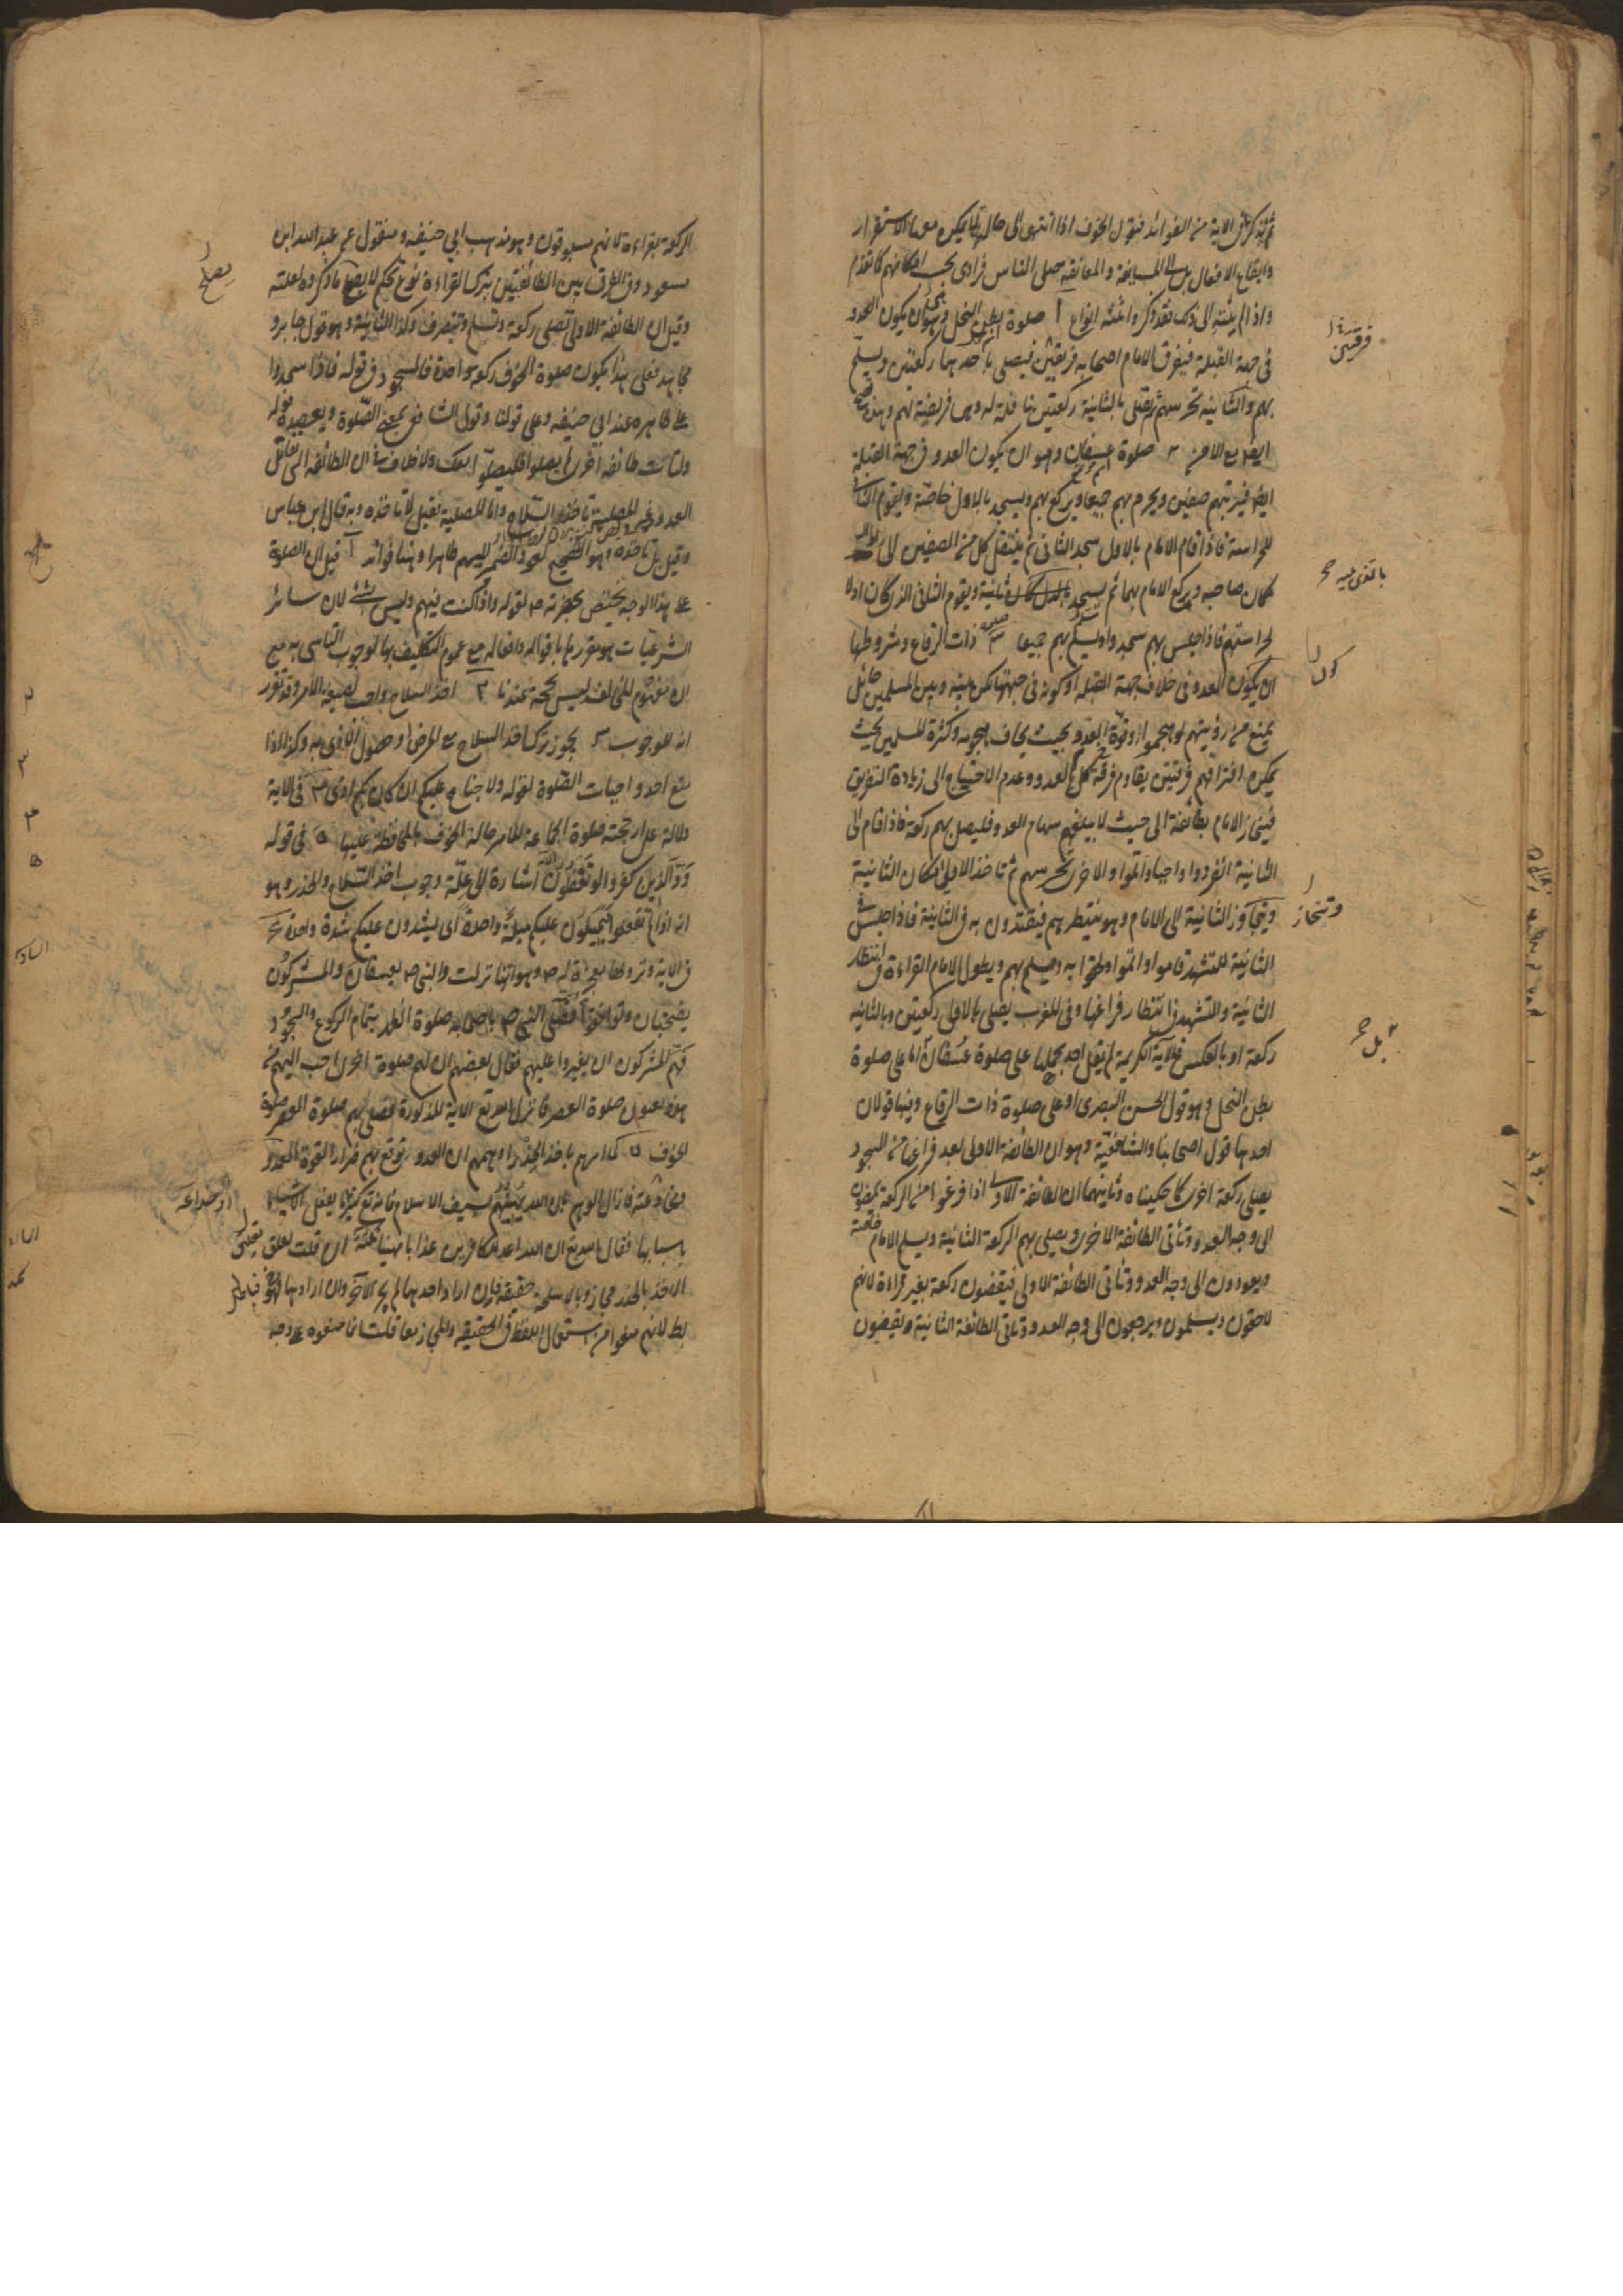 ثم نذكر ما في الاية من الفوائد فنقول الخوف اذا انتهى الى حال لا يمكن معها الاستقرار
وايقاع الافعال بل الى المسايفة والمعانقة صلى الناس فرادى بحسب امكانهم كما تقدم
واذا لم ينته الى ذلك فقد ذكر وا ثلثة انواع ا صلوة بطن النخل وهو ان يكون العدو
فى جهة القبلة فيفرق الامام اصحابه فريقين فيصلى باحدهما ركعتين ويسلم
بهم والثانية تحرسهم ثم يصلى بالثانية ركعتين نافلة له وهى فريضة لهم وهذه تصح
ايضا مع الامن ٢ صلوة عسفان وهو ان يكون العدو فى جهة القبلة
ايضا فيرتبهم صفين ويحرم بهم جميعا ويركع بهم ويسجد بالاول خاصة ويقوم الثانى
للحراسة فاذا قام الامام بالاول سجد الثانى ثم ينتقل كل من الصفين الى
مكان صاحبه ويركع الامام بهما ثم يسجد ثانية ويقوم الثانى الذى كان اولا
لحراستهم فاذا جلس بهم سجدوا ويسلم بهم جميعا ٣ صلوة ذات الرقاع وشروطها
ان يكون العدو فى خلاف جهة القبلة او كونه فى جهتها لكن بينه وبين المسلمين حائل
يمنع من رؤيتهم لو هجموا او قوة العدو بحيث يخاف هجومه وكثرة المسلمين بحيث
يمكن افتراقهم فرقتين يقاوم كل فرقة العدو وعدم الاحتياج الى زيادة التفريق
فينحاز الامام بطائفة الى حيث لا يبلغهم سهام العدو فيصلى بهم ركعة فاذا قام الى
الثانية انفردوا واجبا واتموا والاخرى تحرسهم ثم تاخذ الاولى مكان الثانية
وتنحاز الثانية الى الامام وهو ينتظرهم فيقتدون به فى الثانية فاذا جلس فى
الثانية للتشهد قاموا واتموا ولحقوا به ويسلم بهم ويطول الامام القراءة فى انتظار
الثانية والتشهد فى انتظار فراغها وفى المغرب يصلى بالاولى ركعتين وبالثانية
ركعة او بالعكس فالاية الكريمة لم يقل احد بحملها على صلوة عسفان اما على صلوة
بطن النخل وهو قول الحسن البصرى او على صلوة ذات الرقاع وفيها قولان
احدهما قول اصحابنا والشافعية وهو ان الطائفة الاولى بعد فراغها من السجود
يصلى ركعة اخرى كما حكيناه وثانيهما ان الطائفة الاولى اذا فرغوا من الركعة يمضون
الى وجه العدو وتأتى الطائفة الاخرى ويصلى بهم الركعة الثانية ويسلم الامام خاصة
ويعودون الى وجه العدو وتأتى الطائفة الاولى فيقضون ركعة بغير قراءة لانهم
لاحقون ويسلمون ويرجعون الى وجه العدو وتاتى الطائفة الثانية ويقضون
فرقتين
كون
وتنحاز
بل
الركعة بقراءة لانهم مسبوقون وهو مذهب ابى حنيفه ومنقول عن عبدالله ابن
مسعود وفى الفرق بين الطائفتين بترك القراءة نوع تحكم لا يصلح ما ذكروه لعلته
وقيل ان الطائفة الاولى تصلى ركعة وتسلم وتنصرف وكذا الثانية وهو قول جابر و
مجاهد فعلى هذا يكون صلوة الخوف ركعة واحدة فالسجود فى قوله فاذا سجدوا
على ظاهره عند ابى حنيفه وعلى قولنا وقول الشافعى بمعنى الصلوة ويعضده قوله
ولتأت طائفة اخرى لم يصلوا فليصلوا معك ولا خلاف فى ان الطائفة التى تقاتل
العدو غير المصلية تاخذ السلاح واما المصلية فقيل لا تاخذه وبه قال ابن عباس
وقيل بل تاخذه وهو الصحيح لعود الضمير اليهم ظاهرا وهنا فوائد ا قيل ان الصلوة
على هذا الوجه يختص بحضرته ص لقوله واذا كنت فيهم وليس بشئ لان سائر
الشرعيات هو مقرر بها باقواله وافعاله مع عموم التكليف بها لوجوب التاسى به مع
ان مفهوم المخالفة ليس بحجة عندنا ٢ اخذ السلاح واجب لصيغة الامر وقد تقرر
انه للوجوب ٣ يجوز ترك اخذ السلاح مع المرض او حصول الاذى به وكذا اذا
منع احد واجبات الصلوة لقوله ولا جناح عليكم ان كان بكم اذى ٤ فى الاية
دلالة على ارجحية صلوة الجماعة للامر حالة الخوف بالمحافظة عليها ٥ فى قوله
ود الذين كفروا لو تغفلون اشارة الى علة وجوب اخذ السلاح والحذر وهو
انه اذا لم تفعلوا يميلون عليكم ميلة واحدة اى يشدون عليكم شدة واحدة
فى الاية ونزولها معجزة له ص وهو انها نزلت والنبى ص بعسفان والمشركون
بضجنان وتواقفوا فصلى النبى ص باصحابه صلوة الظهر بتمام الركوع والسجود
فهم المشركون ان يغيروا عليهم فقال بعضهم ان لهم صلوة اخرى احب اليهم من
هذه يعنون صلوة العصر فانزل الله تع الاية المذكورة فصلى بهم صلوة العصر صلوة
الخوف ٧ لما امرهم باخذ الحذر اوهمهم ان العدو توقع بهم ضررا لقوة العدو
فازال الوهم بان الله يهينهم بسيف الاسلام فانه تع كثيرا ما يفعل الاشياء
باسبابها فقال الله تع ان الله اعد للكافرين عذابا مهينا ان قلت تعلق
الاخذ بالحذر مجاز وبالاسلحة حقيقة فان اراد احدهما لم يجز الاخر وان ارادهما
بط لانهم منعوا من استعمال اللفظ فى الحقيقة والمجاز معا قلت انما منعوه على وجه
يصلح
٢
٣
٤
٥